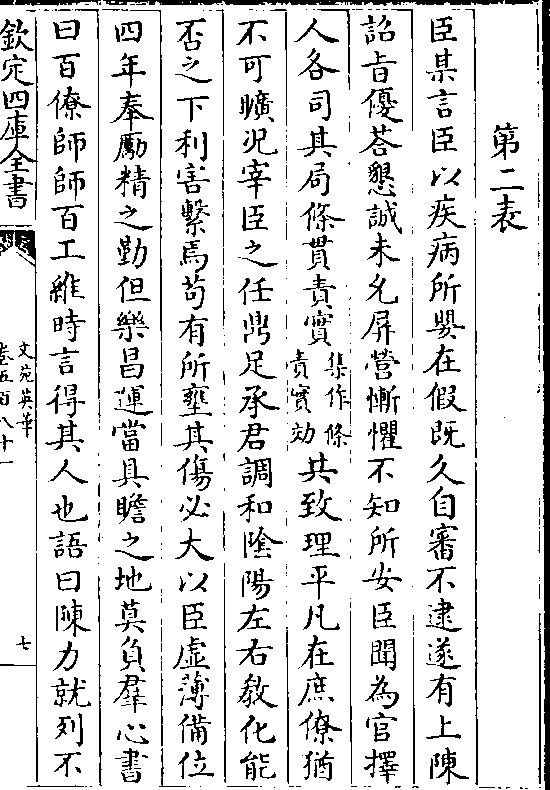 第二表
臣某言臣以疾病所嬰在假既久自審不逮遂有上陳
詔旨優荅懇誠未允屏營慚懼不知所安臣聞為官擇
人各司其局條貫責實集作條責實効其致理平凡在庶僚猶
不可曠况宰臣之任鼎足承君調和陰陽左右教化能
否之下利害繫焉苟有所壅其傷必大以臣虛薄備位
四年奉勵精之勤但樂昌運當具瞻之地莫負羣心書
曰百僚師師百工維時言得其人也語曰陳力就列不
欽定四庫全書
文苑英華
卷五百八十一
七